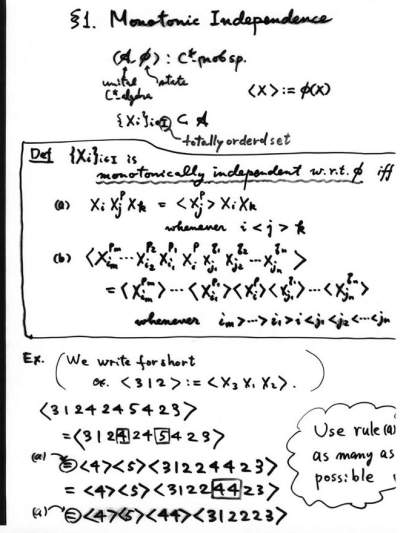 §1. Monotonic Independence
(A, φ) : C*-prob sp.
unital C*-algebra
state
<X> := φ(X)
{Xi}i∈I ⊂ A
totally orderd set
Def {Xi}i∈I is
monotonically independent w.r.t. φ iff
(a) Xi Xj^p Xk = <Xj^p> Xi Xk
whenever i < j > k
(b) <Xim^pm ⋯ Xi2^p2 Xi1^p1 Xi^p Xj1^q1 Xj2^q2 ⋯ Xjn^qn>
= <Xim^pm> ⋯ <Xi1^p1><Xi^p><Xj1^q1> ⋯ <Xjn^qn>
whenever im > ⋯ > i1 > i < j1 < j2 < ⋯ < jn
Ex. (We write for short
ex. <312> := <X3 X1 X2>.)
<31242454 23>
= <312 4 24 5 4 23>
(a) = <4><5><312244 23>
= <4><5><3122 44 23>
(a) = <4><5><44><312223>
Use rule (a)
as many as
possible